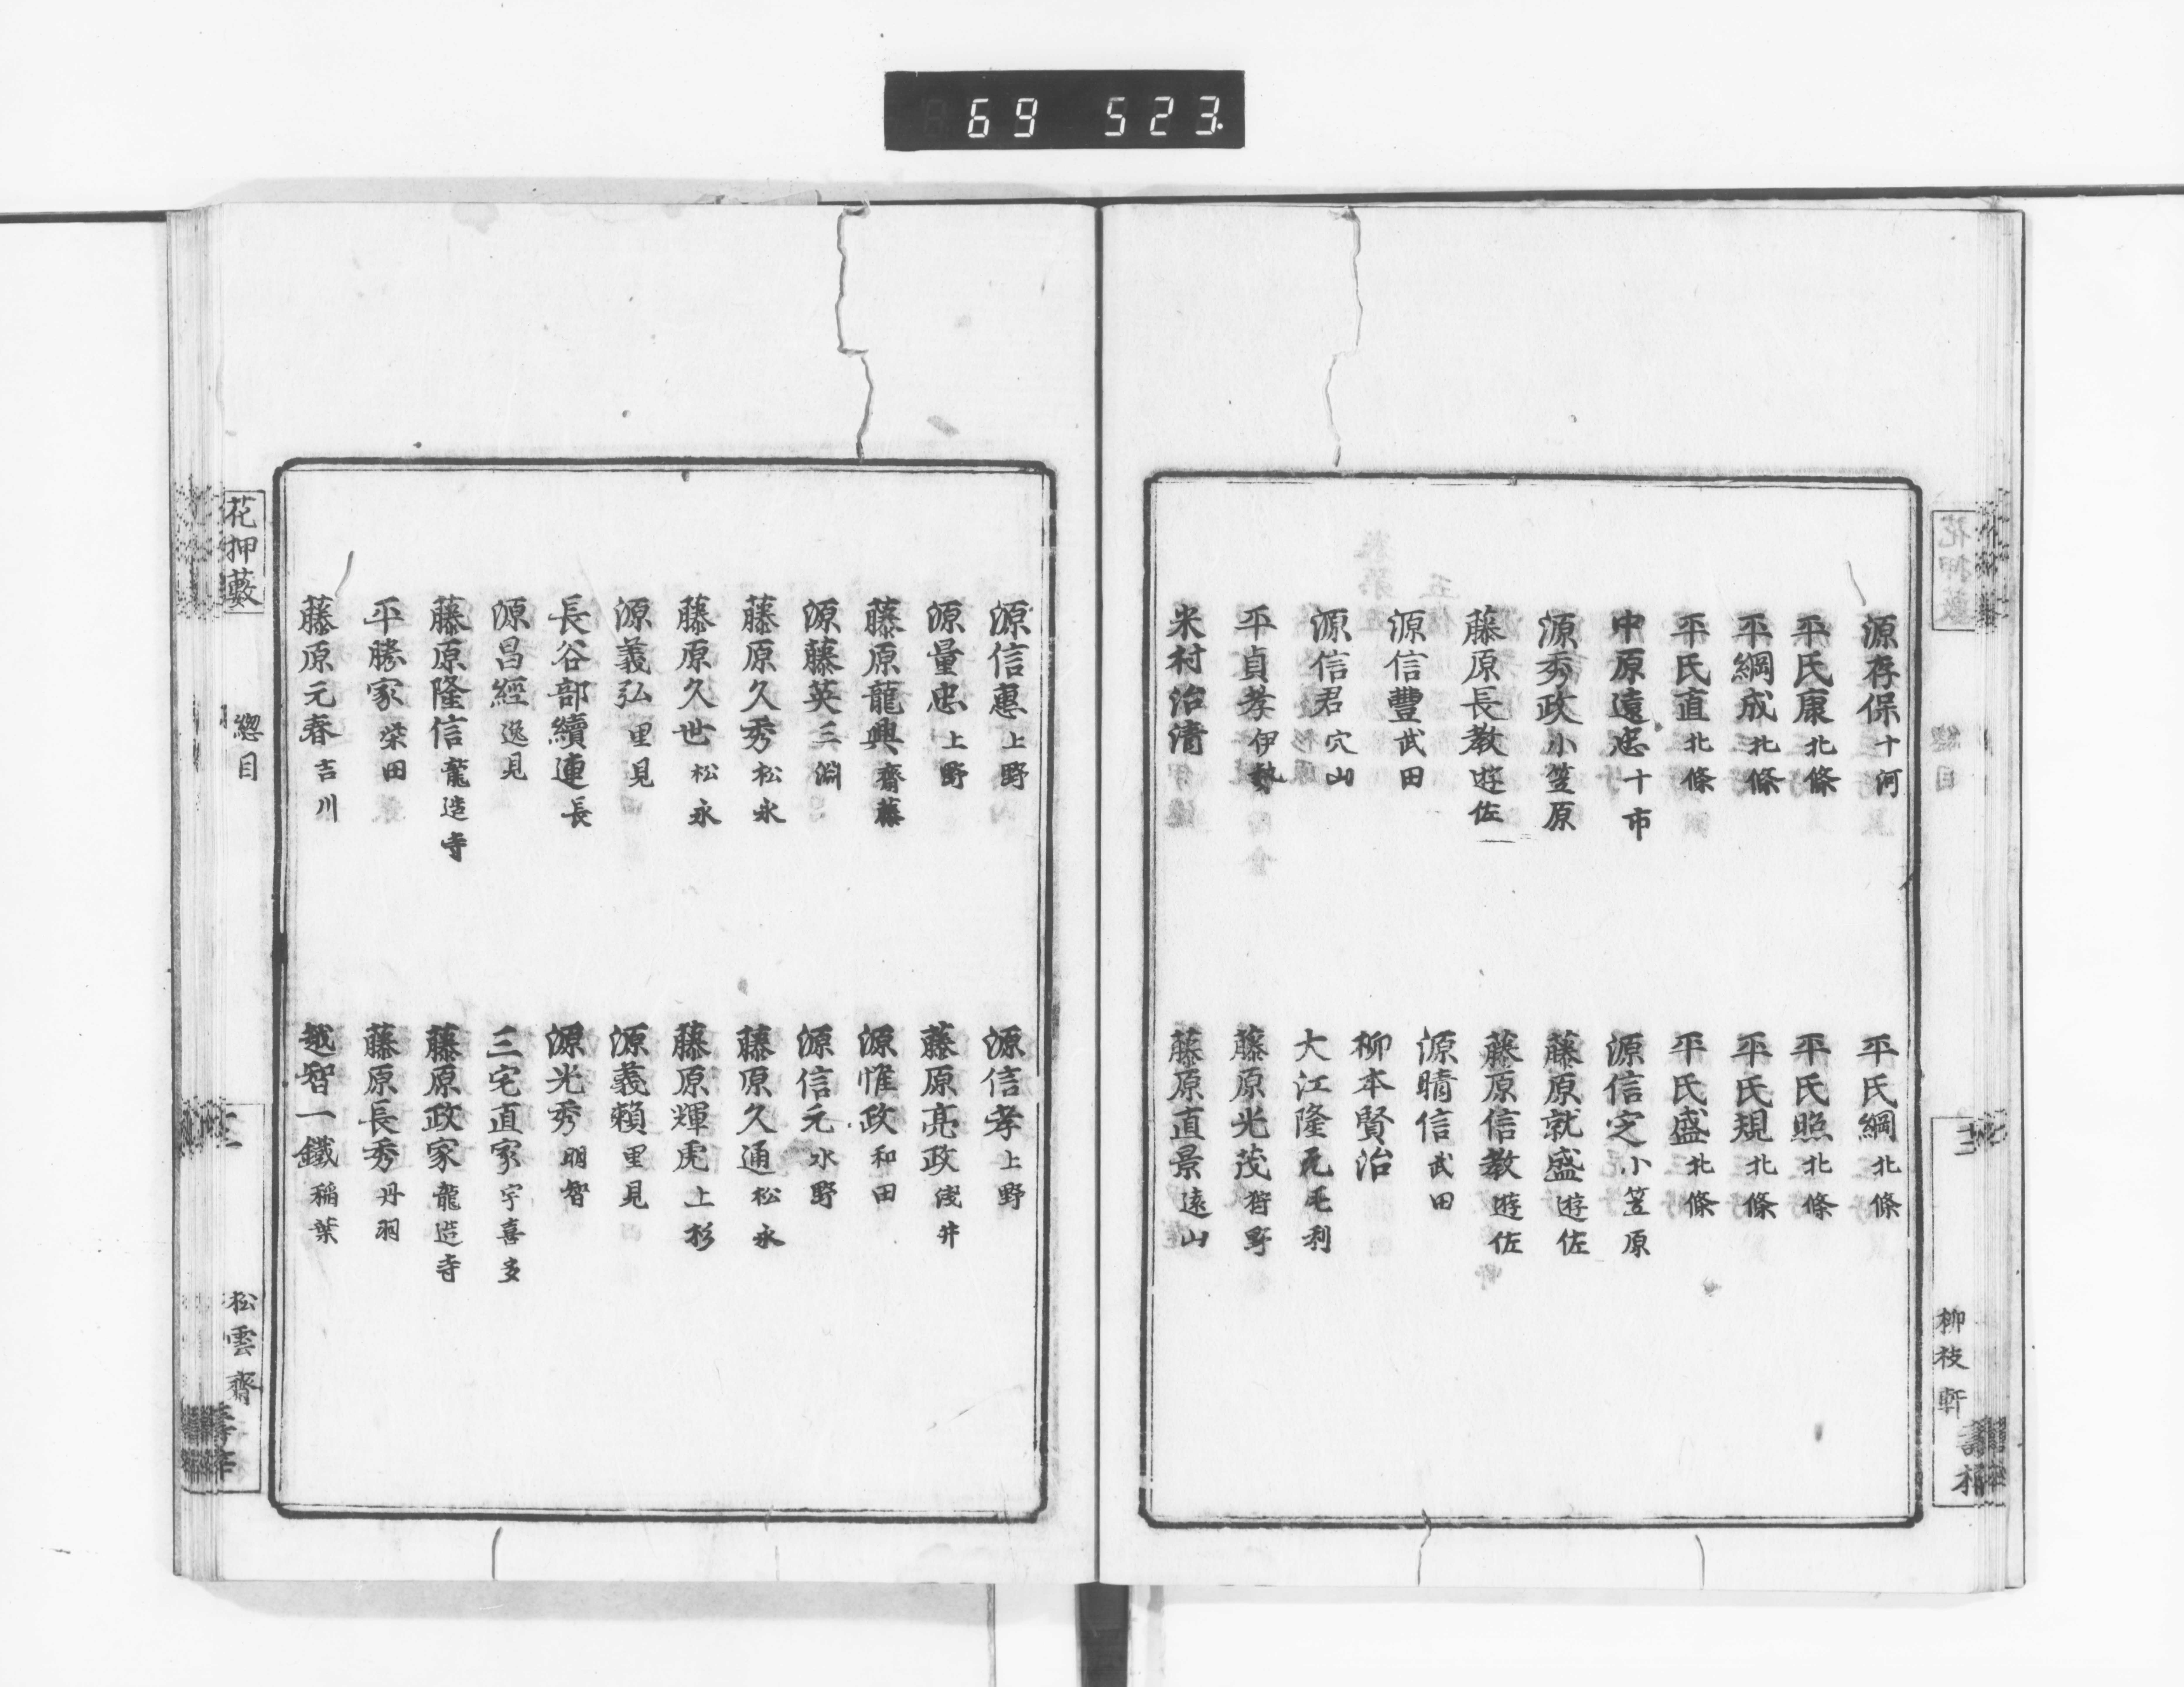 69 523.
源存保十河
平氏康北條
平綱成北條
平氏直北條
中原遠忠十市
源秀政小笠原
藤原長教遊佐
源信豐武田
源信君穴山
平貞孝伊勢
米村治清
平氏綱北條
平氏照北條
平氏規北條
平氏盛北條
源信定小笠原
藤原就盛遊佐
藤原信教遊佐
源晴信武田
柳本賢治
大江隆元毛利
藤原光茂狩野
藤原直景遠山
柳枝軒
源信惠上野
源量忠上野
藤原龍興齋藤
源藤英三淵
藤原久秀松永
藤原久世松永
源義弘里見
長谷部續連長
源昌經逸見
藤原隆信龍造寺
平勝家柴田
藤原元春吉川
源信孝上野
藤原亮政淺井
源惟政和田
源信元水野
藤原久通松永
藤原輝虎上杉
源義賴里見
源光秀明智
三宅直家宇喜多
藤原政家龍造寺
藤原長秀丹羽
越智一鐵稲葉
花押藪
總目
松雲齋